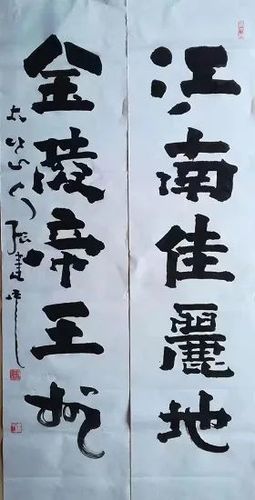 江南佳麗地
金陵帝王州